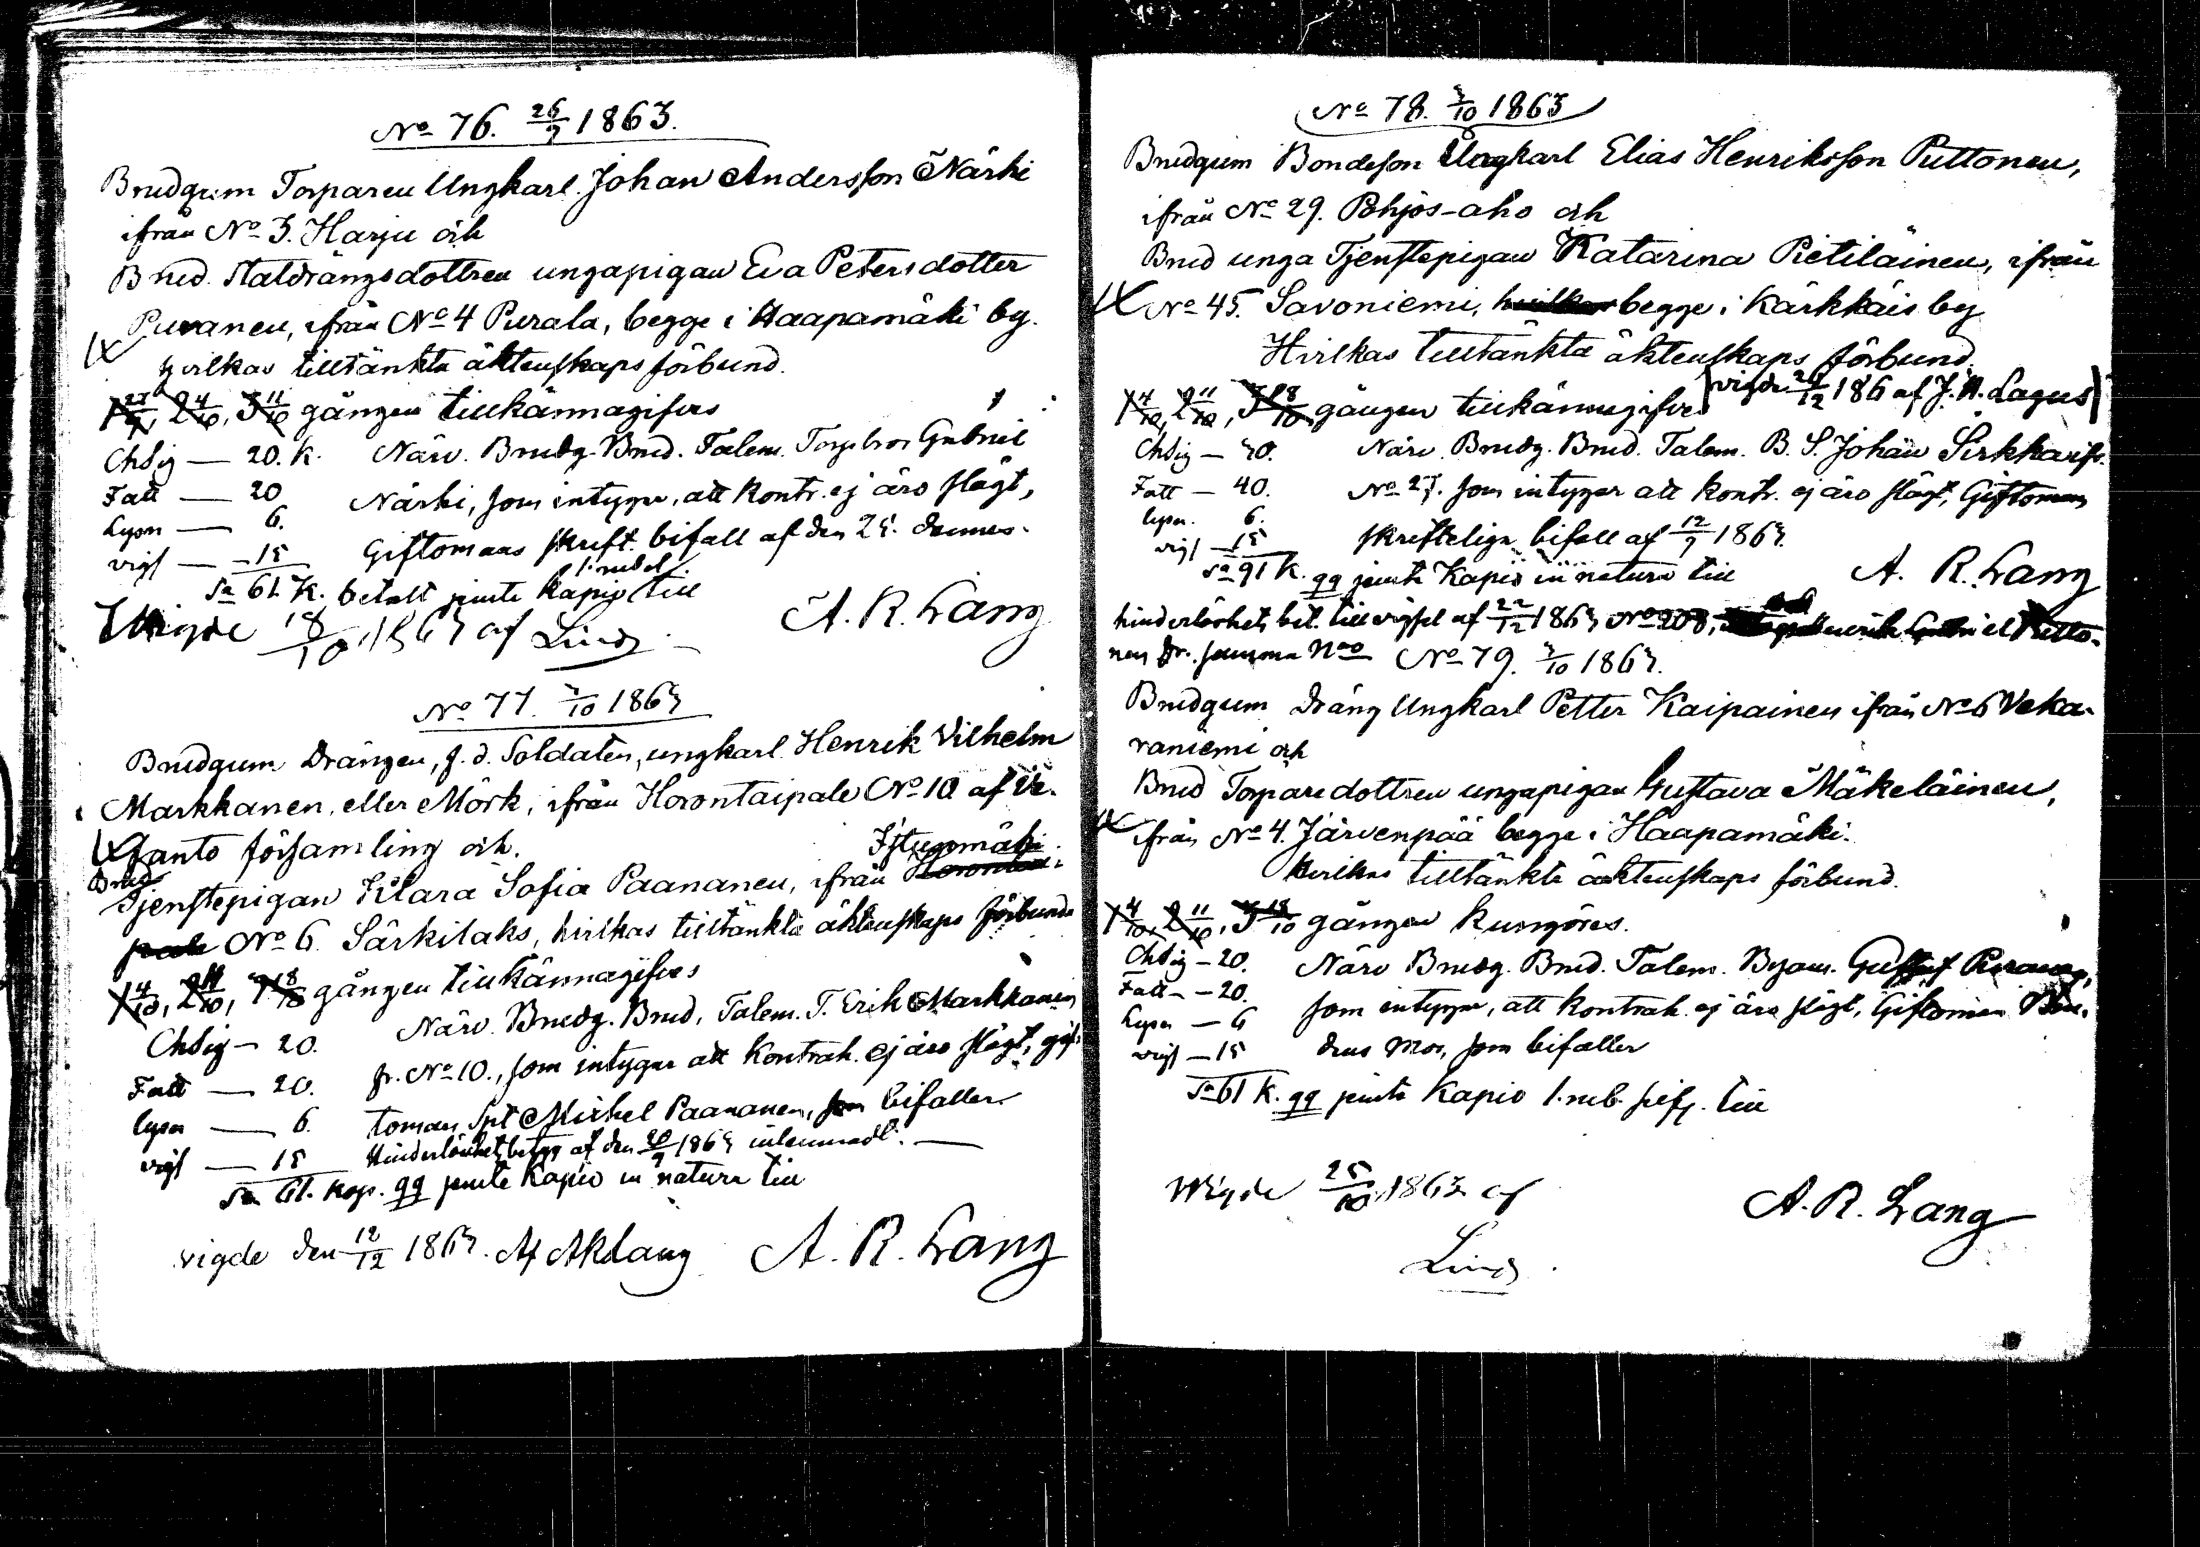 No 76. 26/9 1863.
Brudgum Torparen Ungkarl. Johan Andersson Närhi
ifrån No 3. Harju och
Brud. Staldrängsdottren ungapigan Eva Petersdotter
Puranen, ifrån No 4 Purala, begge i Haapamäki by.
hvilkas tilltänkta äktenskaps förbund.
1 27/9, 2 4/10, 3 11/10 gången tillkännagifves
Chsig — 20. k. Närv. Brudg. Brud. Talem. Torpbror Gabriel
Fatt — 20 Närhi, som intygar, att kontr. ej äro slägt,
Lysn — 6. Giftomans skrift. bifall af den 25. dennes.
vigs — 15
Sa 61. K. betalt jemte kapio 1. rubel till
Vigde 18/10 1863 af Lind
A. R. Lang
No 77. 3/10 1863
Brudgum Drängen, f. d. Soldaten, ungkarl Henrik Vilhelm
Markkanen, eller Mörk, ifrån Horontaipale No 10 af Ve-
santo församling och.
Brud
Tjenstepigan Klara Sofia Paananen, ifrån
No 6. Särkilaks, hvilkas tilltänkta äktenskaps förbund
1 4/10, 2 11/10, 3 18/10 gången tillkännagifves
Chsig — 20. Närv. Brudg. Brud, Talem. T. Erik Markkanen
Fatt — 20. fr. No 10., som intygar att kontrah. ej äro slägt, gif-
lysn — 6. toman Spt Michel Paananen, som bifaller.
vigs — 15 Hinderlöshets betyg af den 20/9 1863 inlemnadt. —
Sa 61. kop. qq jemte Kapio in natura till
vigde den 12/12 1863. Af ARLang A. R. Lang
No 78. 3/10 1863
Brudgum Bondeson Ungkarl Elias Henriksson Puttonen,
ifrån No 29. Pohjos-aho och
Brud unga Tjenstepigan Katarina Pietiläinen, ifrån
No 45. Savoniemi, hvilkas begge i Kärkkäis by
Hvilkas tilltänkta äktenskaps förbund.
1 4/10, 2 11/10, 3 18/10 gången tillkännagifves vigde 26/12 186 af J. A. Lagus
Chsig — 30. Närv. Brudg. Brud. Talem. B. S. Johan
Fatt — 40. No 27. som intygar att kontr. ej äro slägt, Giftomans
lysn. 6. skrifteliga bifall af 12/9 1863.
vigs — 15
Sa 91 K. qq jemte Kapio in natura till A. R. Lang
hinderlöshets bet. till vigsel af 22/12 1863 No 208,
No 79. 3/10 1863.
Brudgum dräng Ungkarl Petter Kaipainen ifrån No 6 Veka-
raniemi och
Brud Torparedottren ungapigan Gustava Mäkeläinen,
ifrån No 4. Järvenpää begge i Haapamäki.
hvilkas tilltänkta äktenskaps förbund.
1 4/10, 2 11/10, 3 18/10 gången kungöres.
Chsig — 20. Närv Brudg. Brud. Talem. Byam. Gustaf Puranen,
Fatt — 20. som intygar, att kontrah. ej äro slägt, Giftoman Bru-
Lysn — 6 dens Mor, som bifaller
vigs — 15
Sa 61 K. qq jemte Kapio 1. rub. silf. till
Wigde 25/10 1863 af
Lind
A. R. Lang